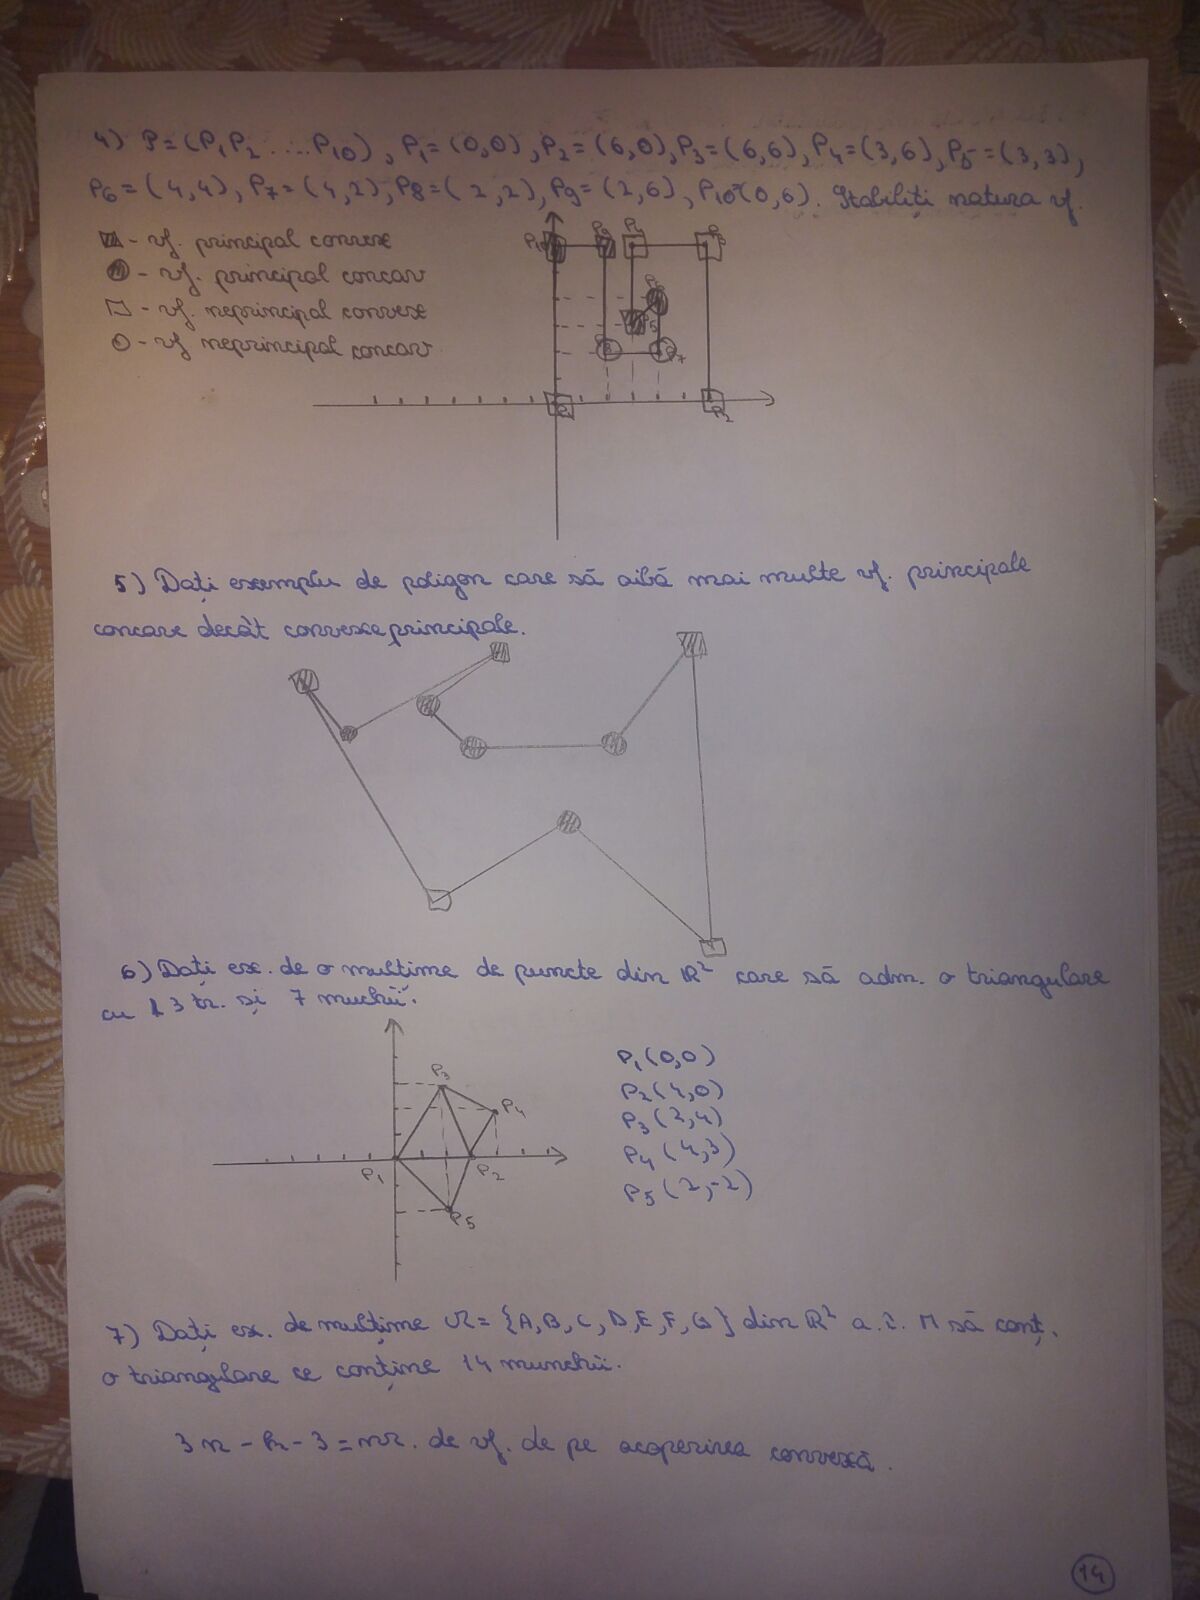 4) P=(P1P2.....P10), P1=(0,0), P2=(6,0), P3=(6,6), P4=(3,6), P5=(3,3),
P6=(4,4), P7=(4,2), P8=(2,2), P9=(2,6), P10(0,6). Stabiliți natura vf.
- vf. principal convex
- vf. principal concav
- vf. neprincipal convex
- vf neprincipal concav
P10 P9 P4 P3
P6
P5
P8 P7
P1 P2
5) Dați exemplu de poligon care să aibă mai multe vf. principale
concave decât convexe principale.
6) Dați ex. de o mulțime de puncte din R² care să adm. o triangulare
cu 3 tr. și 7 muchii.
P3
P4
P1 P2
P5
P1(0,0)
P2(4,0)
P3(2,4)
P4(4,3)
P5(2,-2)
7) Dați ex. de mulțime M={A,B,C,D,E,F,G} din R² a.î. M să conț.
o triangulare ce conține 14 munchii.
3n-k-3=nr. de vf. de pe acoperirea convexă.
14